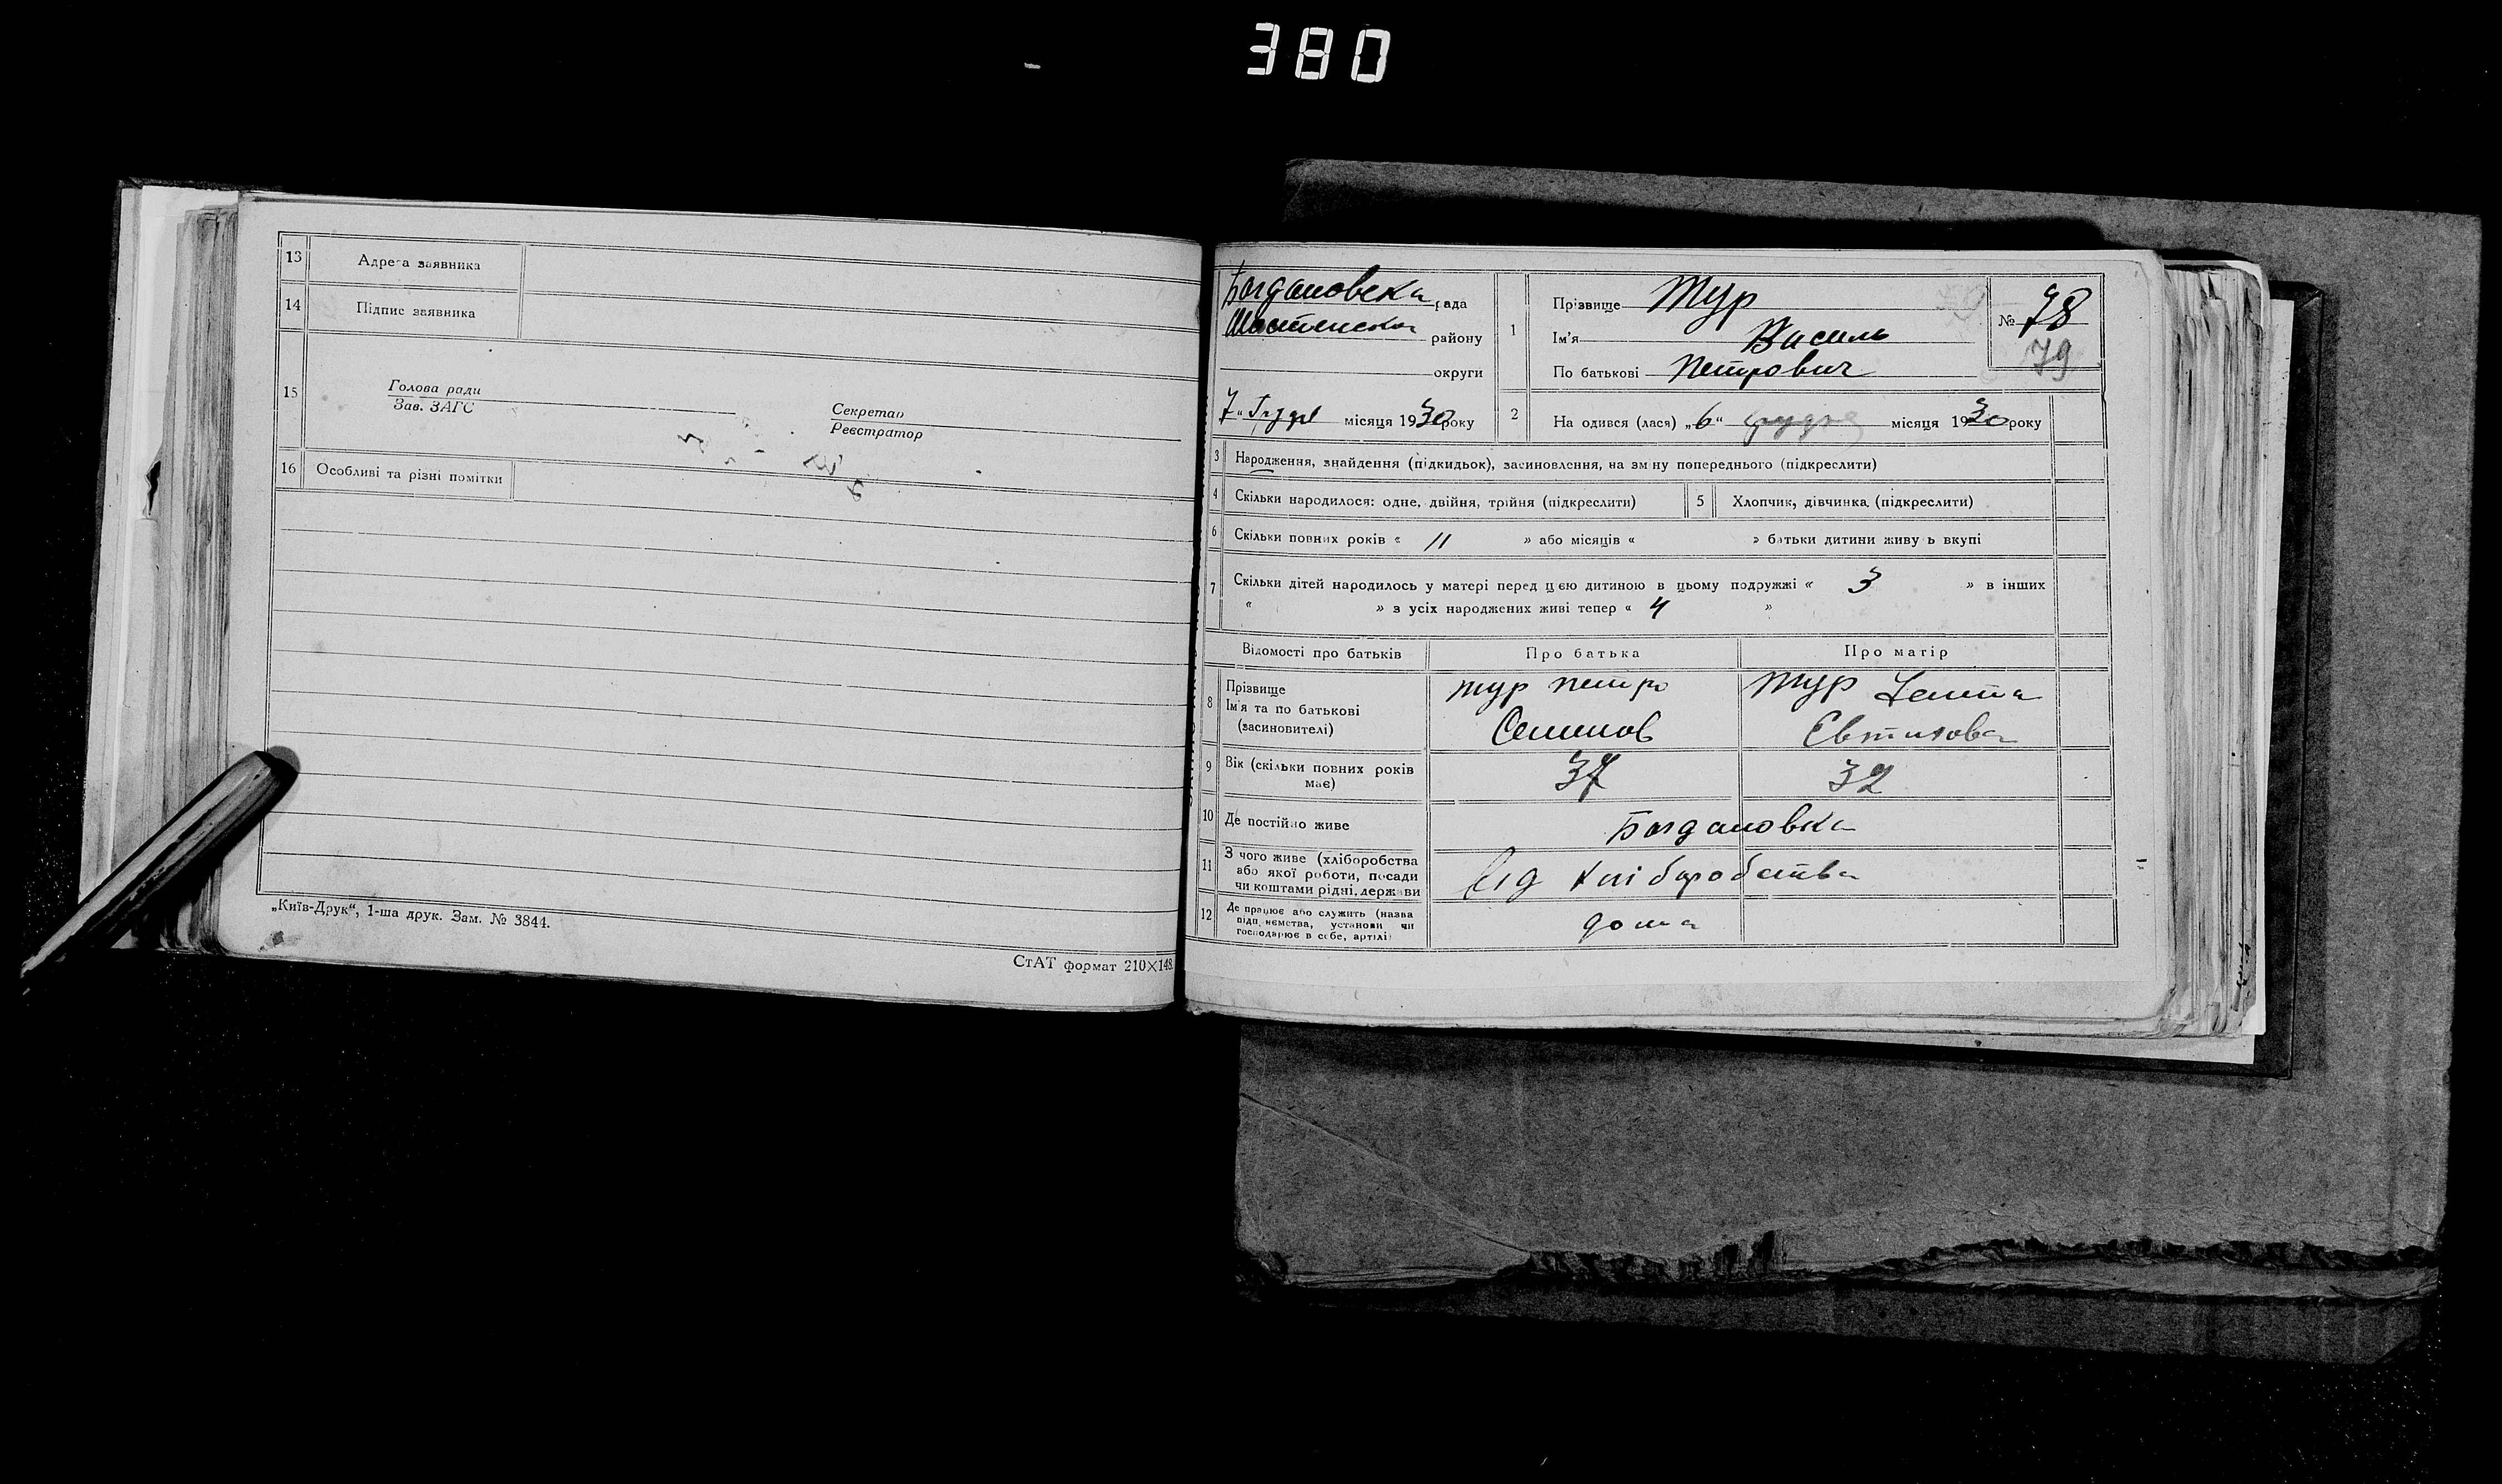 380
13 Адреса заявника
14 Підпис заявника
15 Голова ради
Зав. ЗАГС
Секретар
Реєстратор
16 Особливі та різні помітки
„Київ-Друк“, 1-ша друк. Зам. № 3844.
СтАТ формат 210×148
Богдановска рада
району
округи
7 “ Грудня місяця 1930 року
1 Прізвище Тур
Ім'я Василь
По батькові Петрович
№ 78
79
2 На одився (лася) „6“ грудня місяця 1930 року
3 Народження, знайдення (підкидьок), засиновлення, на зміну попереднього (підкреслити)
4 Скільки народилося: одне, двійня, трійня (підкреслити)
5 Хлопчик, дівчинка (підкреслити)
6 Скільки повних років « 11 » або місяців « » батьки дитини живуть вкупі
7 Скільки дітей народилось у матері перед цією дитиною в цьому подружжі « 3 » в інших
« » з усіх народжених живі тепер « 4 »
Відомості про батьків Про батька Про матір
8 Прізвище
Ім'я та по батькові
(засновителі)
Тур Петро
Семенов
Тур
Евтихова
9 Вік (скільки повних років
має)
37 32
10 Де постійно живе Богдановка
11 З чого живе (хліборобства
або якої роботи, посади
чи коштами рідні, держави
Від хліборобства
12 Де працює або служить (назва
підприємства, установи чи
господарює в себе, артілі)
дома